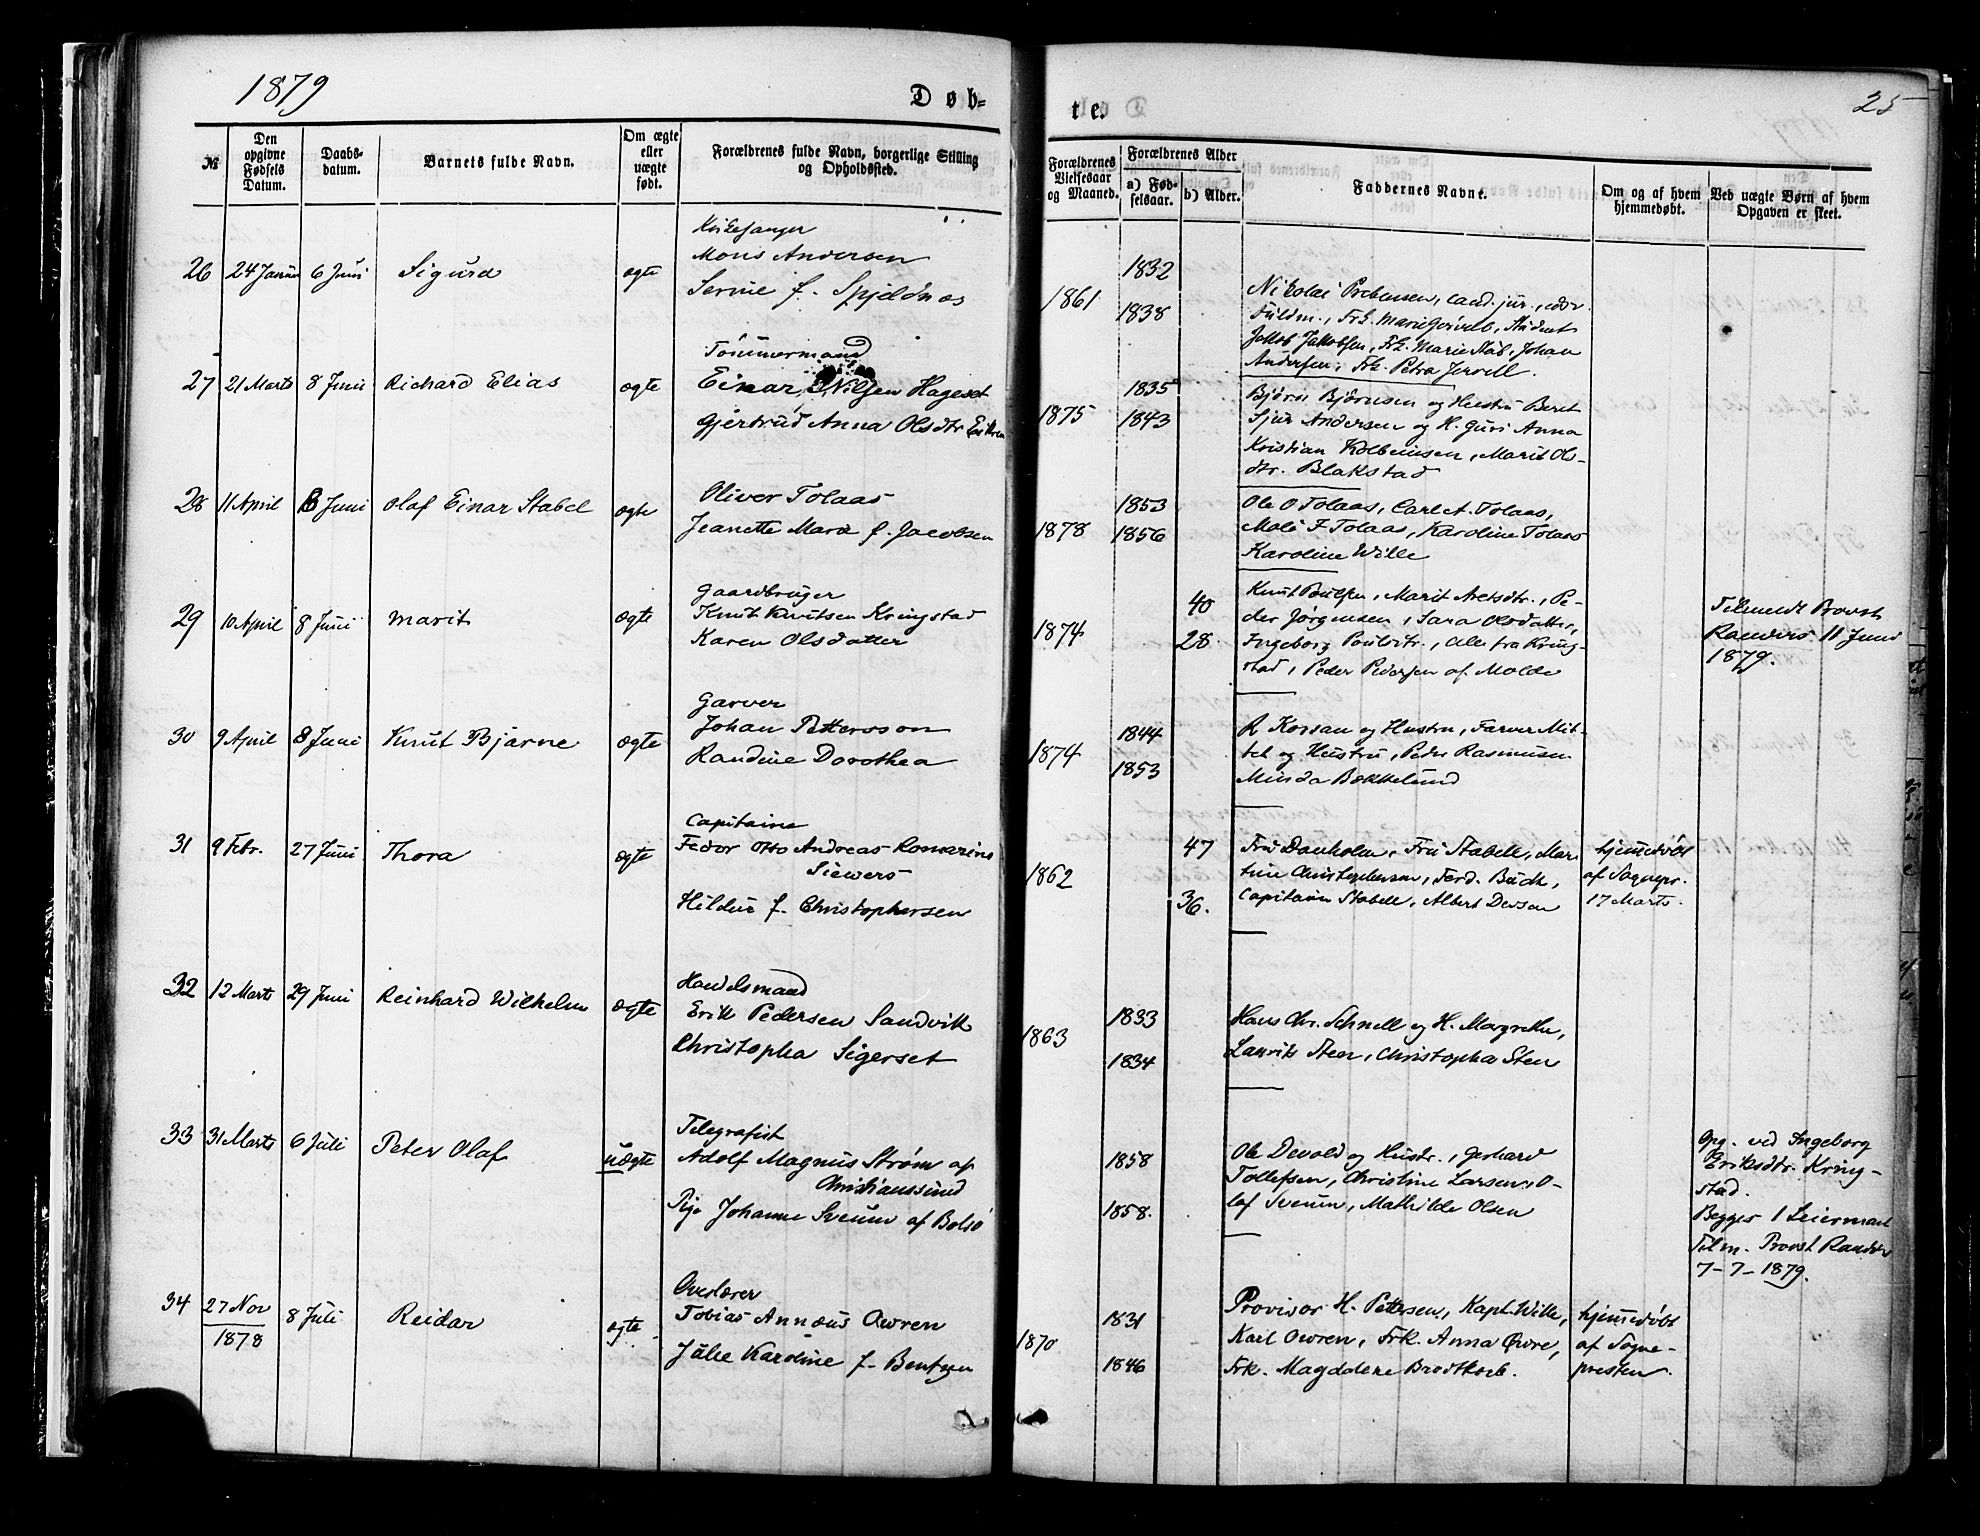 1879
Døb-
te.
25
№
Den opgivne Fødsels Datum.
Daabs-datum.
Barnets fulde Navn.
Om ægte eller uægte født.
Forældrenes fulde Navn, borgerlige Stilling og Opholdssted.
Forældrenes Vielsesaar og Maaned.
Forældrenes Alder
a) Fød-selsaar.
b) Alder.
Faddernes Navne.
Om og af hvem hjemmedøbt.
Ved uægte Børn af hvem Opgaven er skeet.
Kirkesanger
26 24 Januar 6 Juni Sigurd ægte Mons Andersen
Serine f. Spjeldnæs
1861 1832
1838
Nikolai Prebensen, cand. jur.,
Fuldm., Frk. Marie, Student
Jakob Jakobsen, Frk. Marie Stab, Johan
Andersen, Frk. Petra Jervell.
Tømmermand
27 21 Marts 8 Juni Richard Elias ægte Einar Nilsen Hageset
Gjertrud Anna Olsdtr
1875 1835
1843
Bjørn Bjørnsen og Hustru Beret
Sjur Andersen og H. Guri Anna
Kristian Kolbeinsen, Marit Ols-
dtr. Blakstad
28 11 April 8 Juni Olaf Einar Stabel ægte Oliver Tolaas
Jeanette Mara f. Jacobsen
1878 1853
1856
Ole O Tolaas, Carl A. Tolaas,
F Tolaas, Karoline Tolaas
Karoline Wille
Gaardbruger
29 10 April 8 Juni Marit ægte Knut Knutsen Kringstad
Karen Olsdatter
1874 40
28
Knut Poulsen, Marit Aretsdtr., Pe-
der Jørgensen, Sara Olsdatter,
Ingeborg Poulsdtr., Alle fra Kring-
stad, Peder Pedersen af Molde
Tilmeldt Provst
Randers 11 Juni
1879.
Garver
30 9 April 8 Juni Knut Bjarne ægte Johan Pettersson
Randine Dorothea
1874 1844
1853
R. Korsan og Hustru, Farver Mit-
tet og Hustru, Peder Rasmussen
Minda Bækkelund
Capitaine
31 9 Febr. 27 Juni Thora ægte Fedor Otto Andreas Romarino
Siewers
Hildur f. Christophersen
1862 47
36.
Fru Danholm, Fru Stabell, Mar-
tine Christophersen, Ferd. Buch,
Capitain Stabell, Albert Dessen
hjemmedøbt
af Sognepr.
17 Marts.
Handelsmand
32 12 Marts 29 Juni Reinhard Wilhelm ægte Erik Pedersen Sandvik
Christopha Sigerset
1863 1833
1834
Hans Chr. Schnell og H. Margrethe,
Lauritz Steen, Christopha Sten
Telegrafist
33 31 Marts 6 Juli Peter Olaf uægte Adolf Magnus Strøm af
Christianssund
Pige Johanne Sveum af Bolsø
1858
1858.
Ole Devold og Hustr., Gerhard
Tollefsen, Christine Larsen, O-
laf Sveum, Mathilde Olsen
Opg. ved Ingeborg
Eriksdtr. Kring-
stad.
Begges 1 Leiermaal
Tilm. Provst Randers
7-7-1879.
Overlærer
34 27 Nov
1878
8 Juli Reidar ægte Tobias Annæus Owren
Julie Karoline f. Bentzen
1870 1831
1846
Provisor H. Pettersen, Kapt. Wille,
Karl Owren, Frk. Anna Øvre,
Frk. Magdalene Brodtkorb.
hjemmedøbt
af Sogne-
presten.